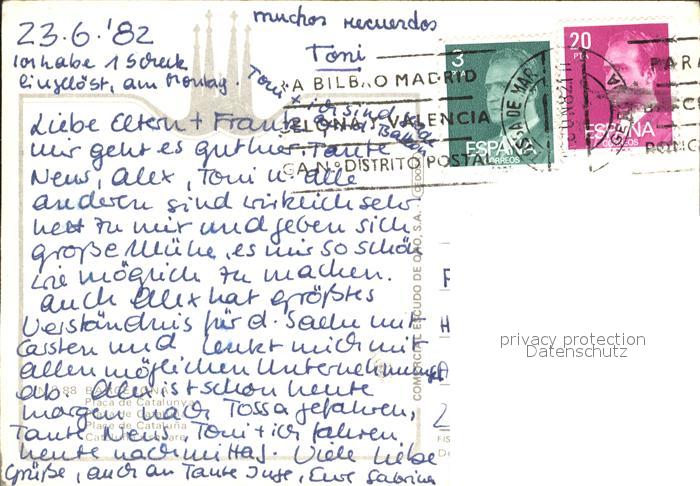 23.6.'82
muchos recuerdos
Toni
Ich habe 1 Scheck
eingelöst, am Montag.
Toni + ich sind
Liebe Eltern + Frank
mir geht es gut hier. Tante
Neus, Alex, Toni u. alle
anderen sind wirklich sehr
nett zu mir und geben sich
große Mühe, es mir so schön
wie möglich zu machen.
Auch Alex hat größtes
Verständnis für d. Sache mit
Carsten und lenkt mich mit
allen möglichen Unternehmungen
ab. Alex ist schon heute
morgen nach Tossa gefahren,
Tante Neus, Toni + ich fahren
heute nachmittag. Viele liebe
Grüße, auch an Tante Inge, Eure Sabrina
3
PTA
ESPAÑA
CORREOS
20
PTA
ESPAÑA
CORREOS
A BILBAO MADRID
VALENCIA
DISTRITO POSTAL
PARA
88 BARCELONA
Plaça de Catalunya
Plaza de Cataluña
COMERCIAL ESCUDO DE ORO, S.A.
privacy protection
Datenschutz